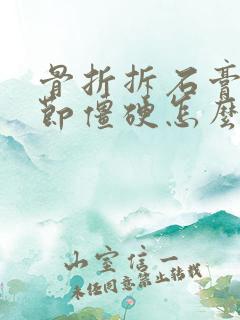 骨折拆石膏
节僵硬怎么
山室信一
未经同意禁止转载